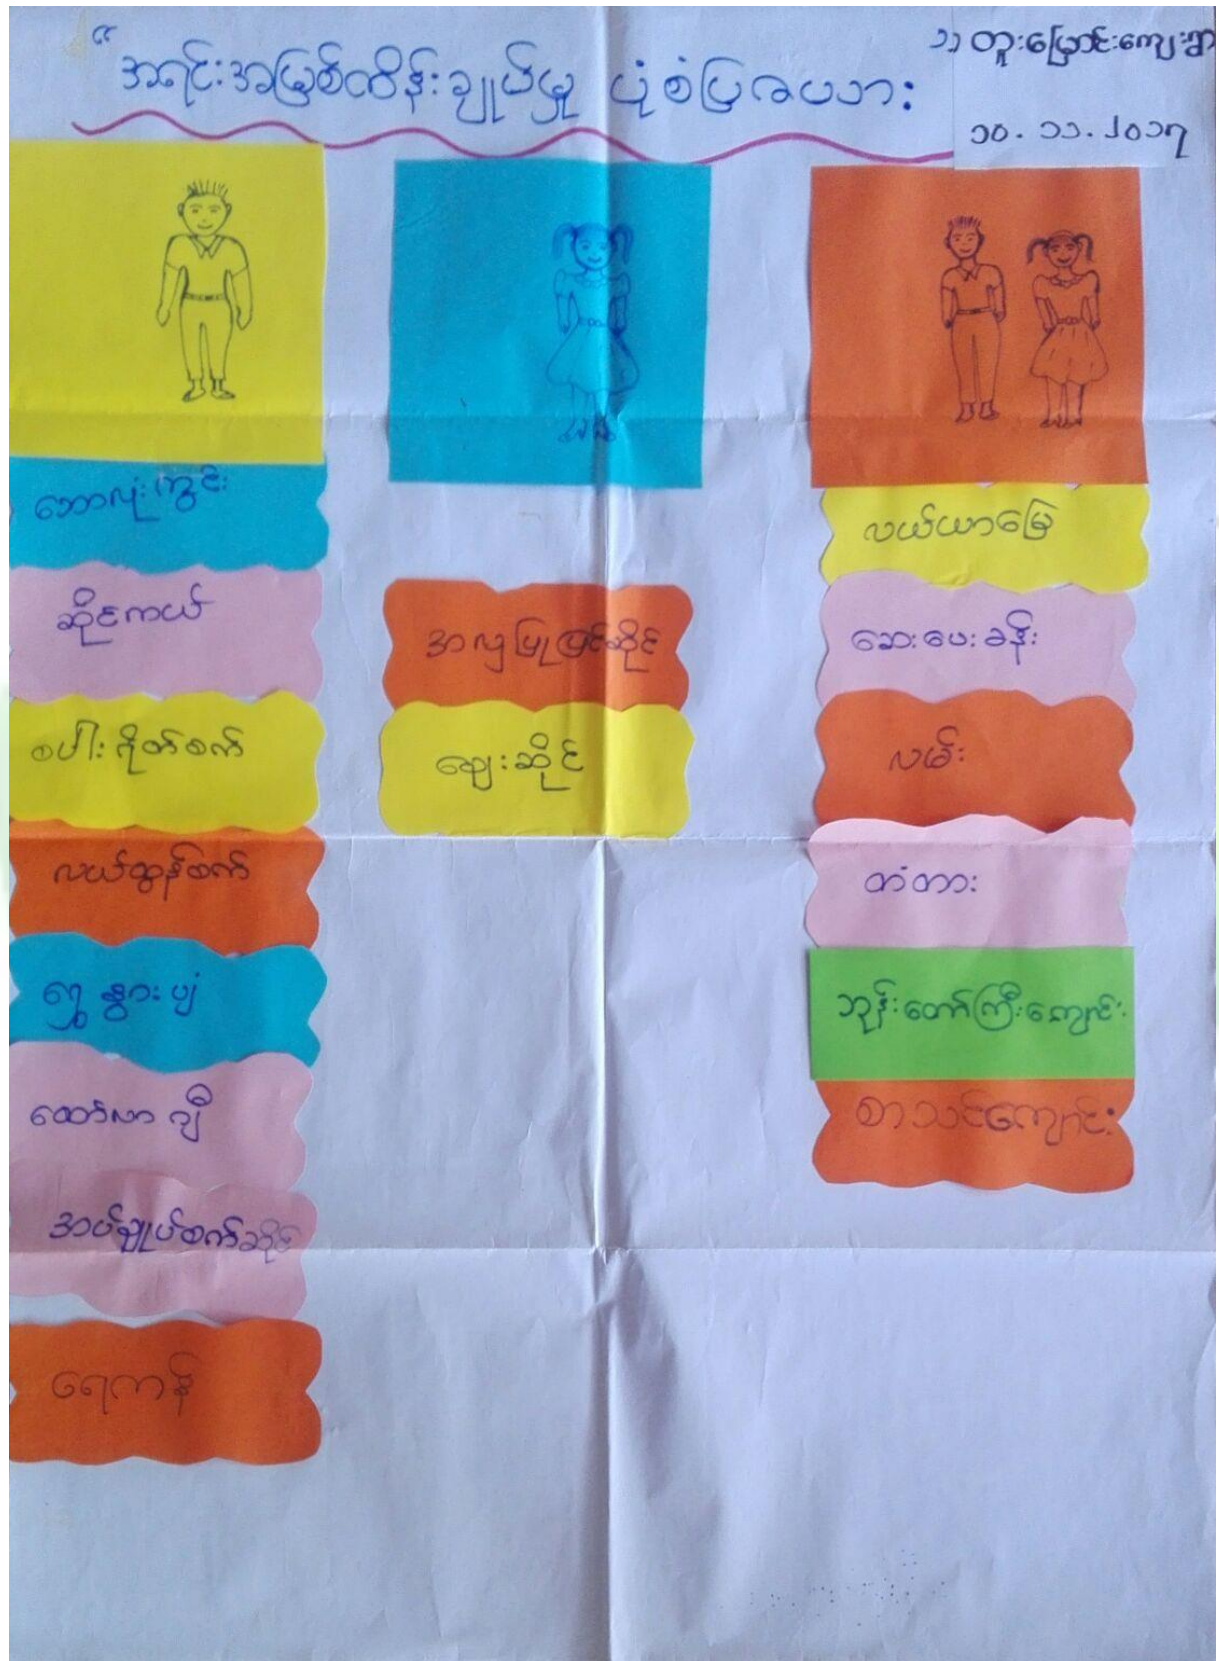 "အရင်းအမြစ်ထိန်းချုပ်မှု ပုံစံပြဇယား
၁) တူးမြောင်းကျေးရွာ
၁၀.၁၁.၂၀၁၇
ဘောလုံးကွင်း
ဆိုင်ကယ်
စပါးရိတ်စက်
လယ်ထွန်စက်
ရွှေနွားပျံ
ထော်လာဂျီ
အပ်ချုပ်စက်ဆိုင်
ရေကန်
အလှပြုပြင်ဆိုင်
ဈေးဆိုင်
လယ်ယာမြေ
ဆေးပေးခန်း
လမ်း
တံတား
ဘုန်းတော်ကြီးကျောင်း
စာသင်ကျောင်း